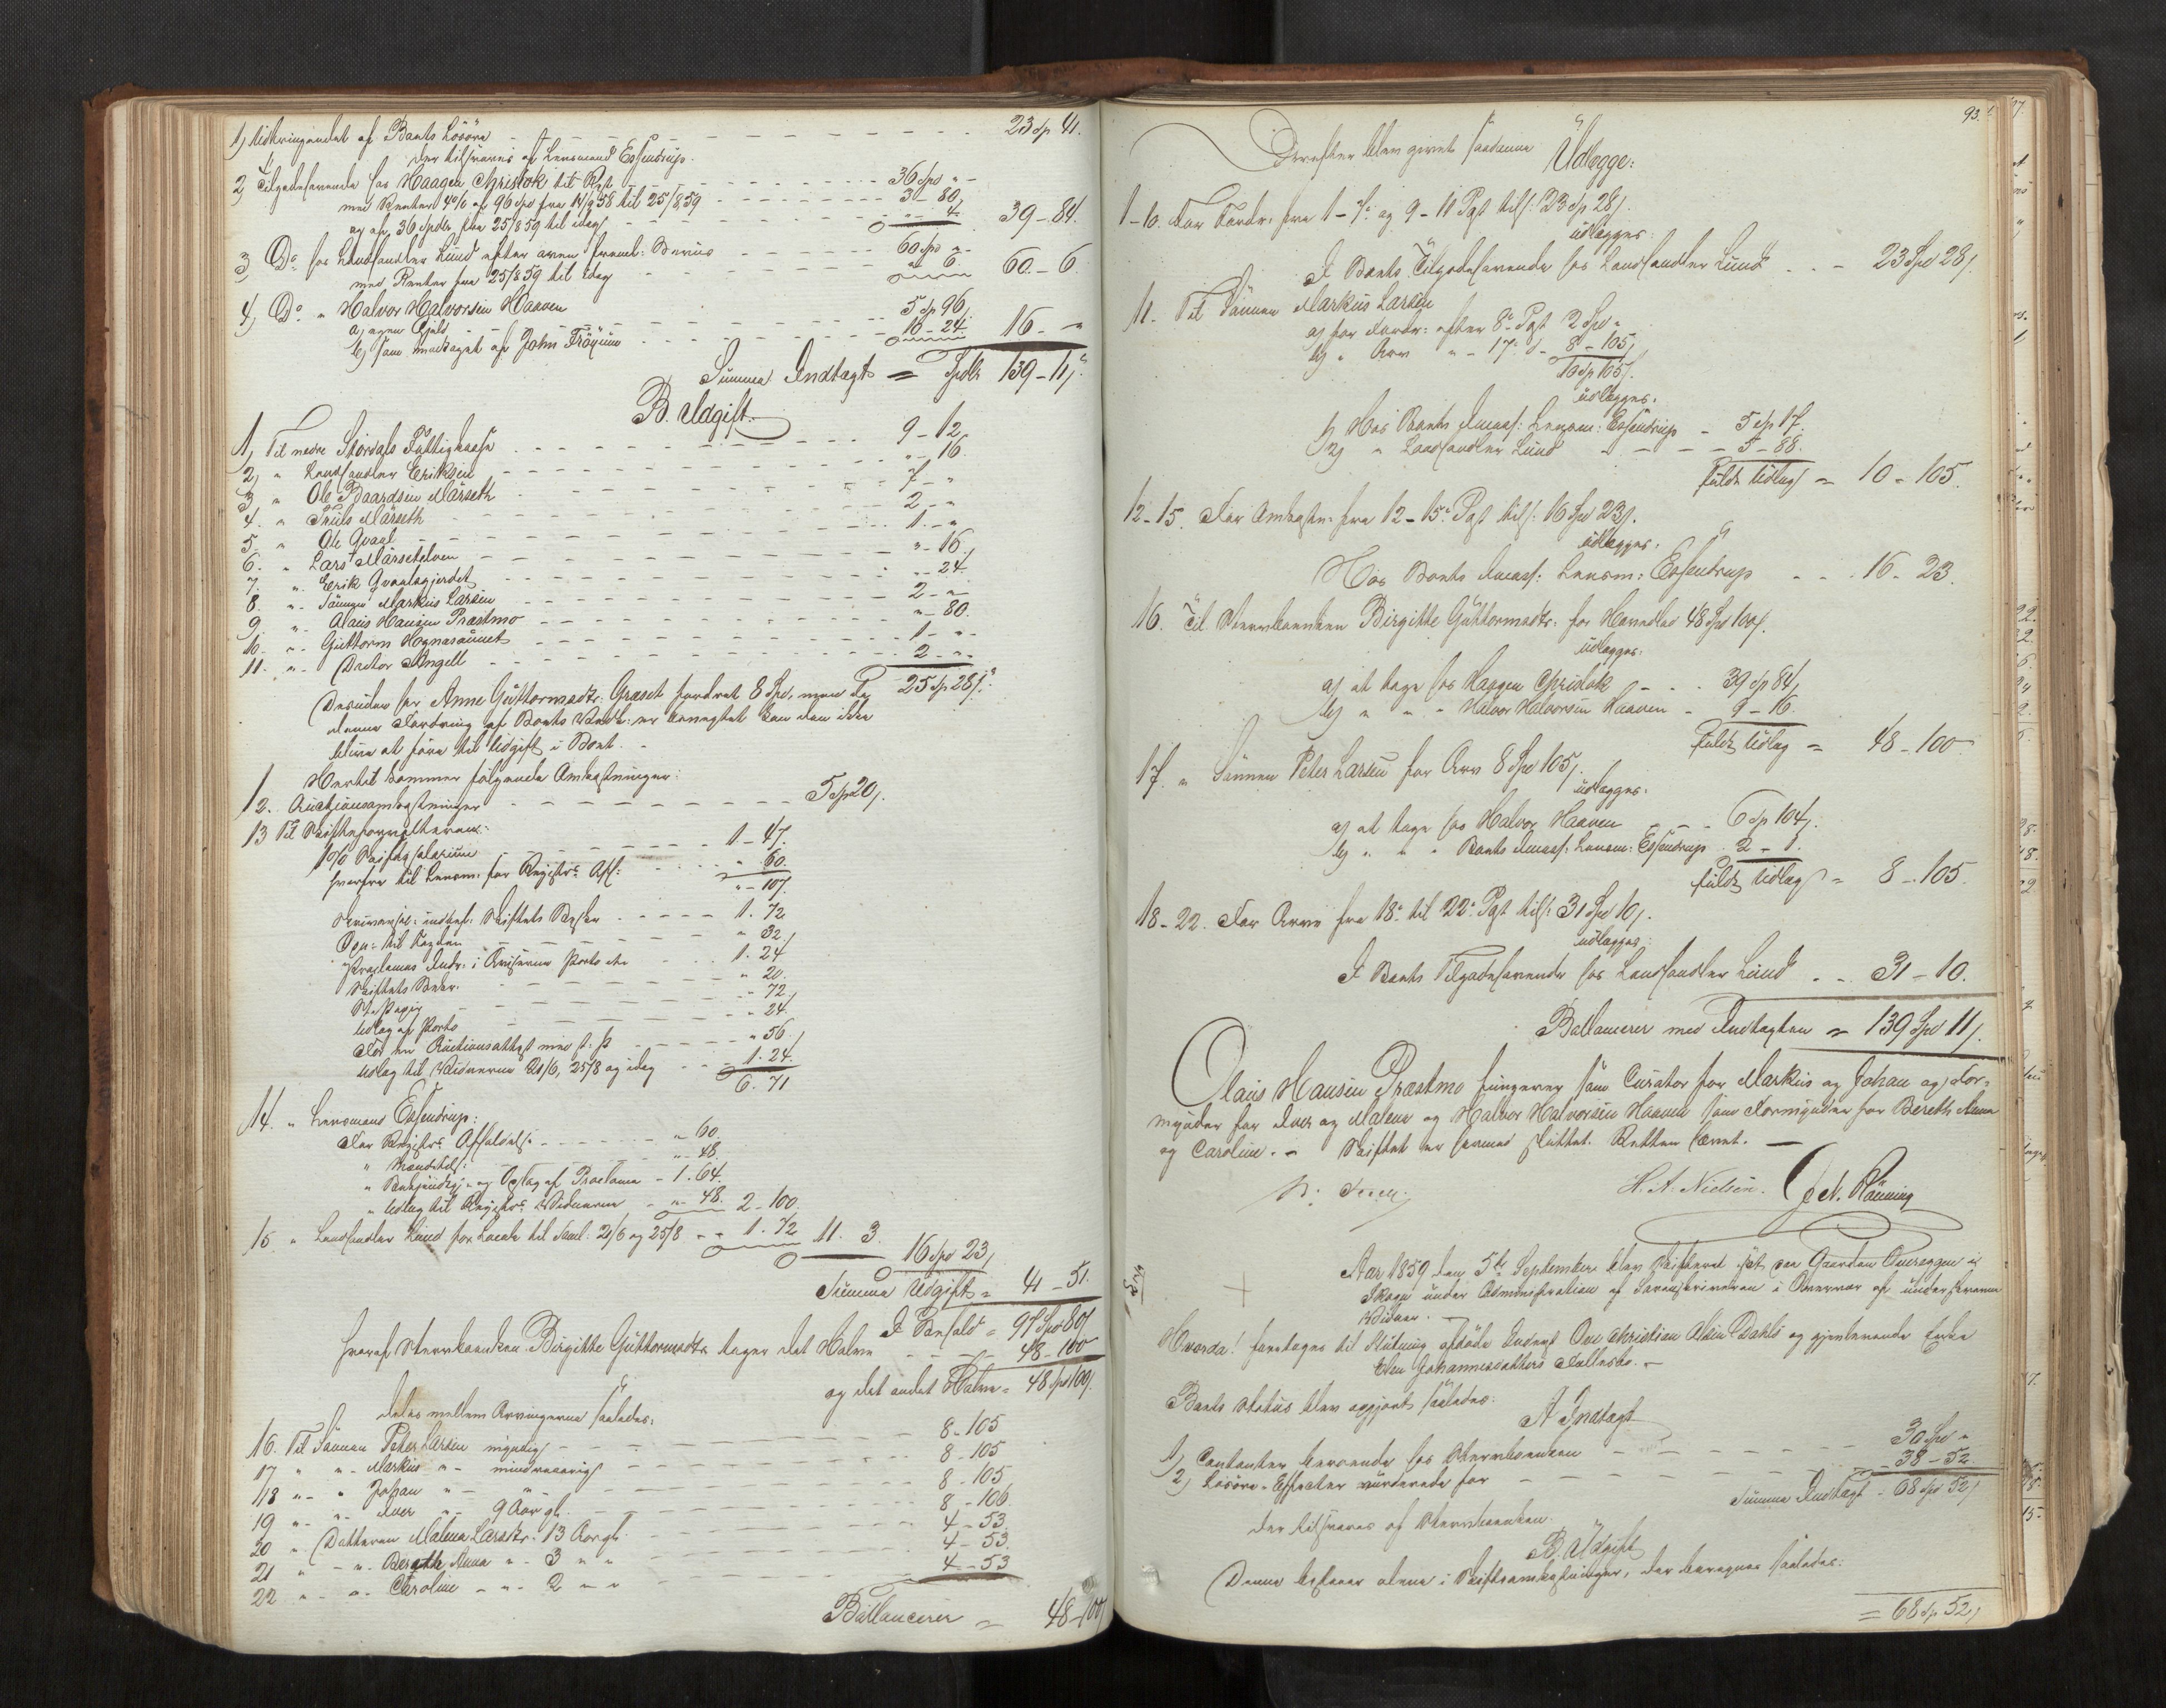 1, Udbringendet af Boets Løsøre - - - 23 Sp 41.
der tilsvares af Lensmand Essendrup.
2, Tilgodehavende hos Haagen Chrislok til Rest - - - 36 Spd " -
med Renter 4% af 96 Spd fra 14/2 58 til 25/8 59 - - - 3 - 80,
og af 36 Spdlr fra 25/8 59 til idag - - - " - 4. 39 - 84.
3, Do hos Landhandler Lund efter oven
med Renter fra 25/8 59 til idag - - - 60 Spd " - " 6. 60 - 6
4, Do " Halvor Halvorsen Haaven
a, egen Gjeld - - - 5 Sp 96,
b, som modtaget af John Frøÿum - - - 10 - 24. 16 - "
Summa Indtægt = Spdlr 139 - 11 ß
B. Udgift.
1, Til nedre Størdals Fattigkasse - - - 9 - 12
2, " Landhandler Eriksen - - - " - 16
3 " Ole Baardsen Mærseth - - - 7 - "
4. " Truls Mærseth - - - 2 - "
5. " Ole Qvaal - - - 1. - "
6. " Lars Mærsetelven - - - " - 16.
7. " Erik Qvaalsgjerdet - - - " - 24.
8. " Sønnen Markus Larsen - - - 2 - "
9. " Olaus Hansen Præstmo - - - " - 80.
10. " Guttorm Hognesaunet - - - 1 - "
11. " Doctor Angell - - - 2 - "
25 Sp 28 ß
Desuden har Anne Guttormsdtr. Græset fordret 8 Spd, men da
denne Fordring af Boets Vedk: er benegtet kan den ikke
blive at føre til Udgift i Boet. -
Hertil kommer følgende Omkostninger:
12. Auctionsomkostninger - - - 5 Sp 20 ß
13 Til Skifteforvalteren:
1% Skiftesalarium - - - 1 - 47.
hvorfra til Lensm: for Registr: Afh: - - - " 60.
" - 107.
Skriversal: indbef: Skiftets Besl: - - - 1. 72
Opn: til - - - " 32
Proclamas Indr: i Aviserne Porto etc - - - 1. 24
Skiftets Bekr: - - - " 20.
St. Papir - - - " 72,
Udlæg af Porto - - - " 24.
For en Auctionsattest med st. P - - - " 56
Udlæg til Vidnerne 21/6, 25/8 og idag - - - 1. 24.
6. 71
14. " Lensmand Essendrup:
For Registr: Afholdelse - - - " 60
" - - - " 48.
" Bekjendtgj: og Opslag af Proclama - 1. 64.
" Udlæg til Registr: Vidnerne - " - 48. 2 - 100.
15 " Landhandler Lund for Locale til Saml: 21/6 og 25/8 - - 1. 72 11. 3.
16 Spd 23,
Summa Udgift = 41 - 51.
I Behold = 97 Spd 80 ß
hvoraf Sterboenken Birgitte Guttormsdtr tager det Halve - - - 48 - 100
og det andet Halve = 48 Spd 100 ß
deles mellem Arvingerne saaledes:
16. Til Sønnen Peter Larsen myndig - - - 8 - 105
17 " " Markus " - mindreaarig - - - 8 - 105
18 " " Johan " - " - - - 8 - 105,
19 " " Iver " - 9 Aar gl. - - - 8 - 106.
20 " Datteren Malena Larsdtr. 13 Aar gl. - - - 4 - 53
21 " - " Berette Anna " - 3 " " - - - 4 - 53.
22 " - " Caroline - " - 2 " " - - - 4 - 53
Ballancerer = 48 - 100 ß
93.
Derefter blev givet saadanne Udlægge:
1 - 10. For Fordr: fra 1 - 7. og 9 - 11 Post tils: 23 Sp 28 ß.
udlægges:
I Boets Tilgodehavende hos Landhandler Lund - - - 23 Spd 28 ß
11. Til Sønnen Markus Larsen
a, for Fordr: efter 8. Post 2 Spd "
b, " Arv " - 17. d - 8 - 105,
10 Sp 105 ß.
udlægges.
1, Hos Boets Incass: Lensm: Essendrup - 5 Sp 17.
2, " Landhandler Lund - - - 5 - 88.
fuldt Udlæg = 10 - 105.
12 - 15. For Omkostn: fra 12 - 15. Post tils: 16 Spd 23 ß.
udlægges.
Hos Boets Incass: Lensm: Essendrup - - - 16 - 23.
16. Til Sterboenken Birgitte Guttormsdtr: for Hovedlod 48 Spd 100 ß.
udlægges:
a, at tage hos Haagen Chrislok - - - 39 Sp 84,
b, " " - Halvor Halvorsen Haaven - 9 - 16.
fuldt Udlæg = 48 - 100
17. " Sønnen Peter Larsen for Arv 8 Spd 105 ß.
udlægges.
a, at tage hos Halvor Haaven - - - 6 Sp 104 ß.
b, " " " Boets Incass: Lensm: Essendrup - 2 - 1.
fuldt Udlæg = 8 - 105.
18 - 22. For Arv fra 18. til 22. Post tils: 31 Spd 10 ß.
udlægges:
I Boets Tilgodehavende hos Landhandler Lund - - - 31 - 10.
Ballancerer med Indtægten = 139 Spd 11 ß.
Olaus Hansen Præstmo fungerer som Curator for Markus og Johan og For-
mynder for Iver og Malene og Halvor Halvorsen Haaven som Formynder for Bereth Anna
og Caroline. - Skiftet er hermed sluttet. Retten hævet. -
H. A. Nielsen.
Aar 1859 den 5te September blev Skifteret sat paa Gaarden Overeggen i
Skogn under Administration af Sorenskriveren i Overvær af underskrevne
Vidner. -
Hvorda! foretages til Slutning afdøde Inderst Ove Christian Olsen Dahls og gjenlevende Enke
Elen Johannesdatters Fællesbo. -
Boets Status blev opgjort saaledes:
A Indtægt
1, Contanter beroende hos Sterboenken - - - 30 Spd "
2, Løsøre-Effecter vurderede for - - - 38 - 52.
Summa Indtægt - 68 Spd 52 ß
der tilsvares af Sterboenken.
B, Udgift
Denne bestaar alene i Skifteomkostninger, der beregnes saaledes:
= 68 Sp 52 ß